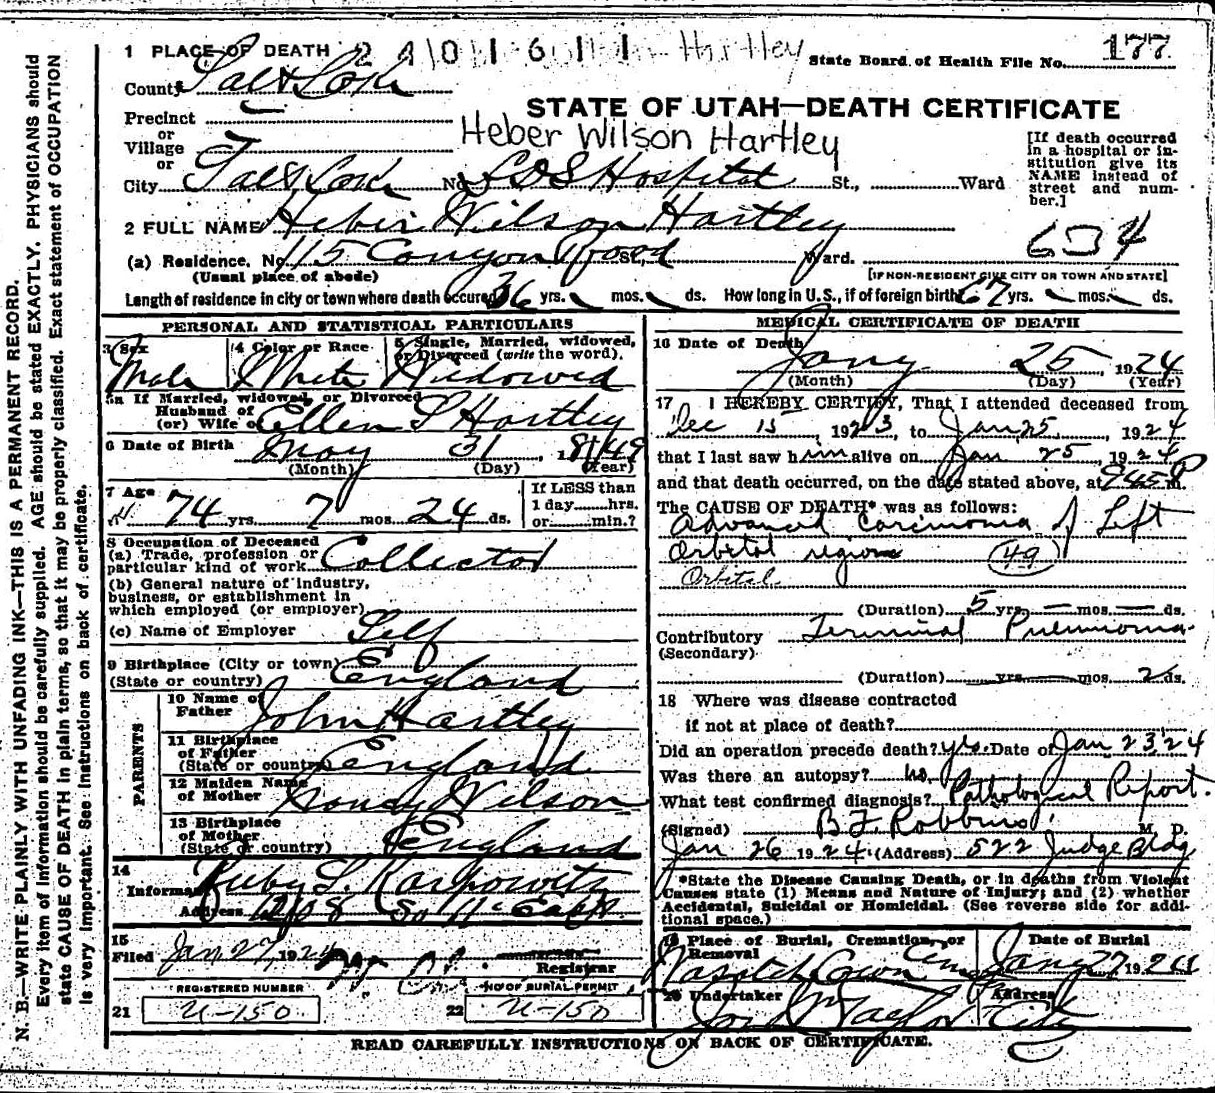 1 PLACE OF DEATH 2401611 Hartley State Board of Health File No. 177
County Salt Lake
STATE OF UTAH—DEATH CERTIFICATE
Precinct
or
Village
or
Heber Wilson Hartley
[If death occurred in a hospital or institution give its NAME instead of street and number.]
City Salt Lake No. LDS Hospital St., Ward
2 FULL NAME Heber Wilson Hartley
634
(a) Residence. No. 115 Canyon Road St., Ward.
(Usual place of abode) [IF NON-RESIDENT GIVE CITY OR TOWN AND STATE]
Length of residence in city or town where death occured 36 yrs. mos. ds. How long in U.S., if of foreign birth 67 yrs. mos. ds.
PERSONAL AND STATISTICAL PARTICULARS
3 Sex Male
4 Color or Race White
5 Single, Married, widowed, or Divorced (write the word). Widowed
5a If Married, widowed, or Divorced
Husband of
(or) Wife of Ellen S Hartley
6 Date of Birth May 31 1849
(Month) (Day) (Year)
7 Age 74 yrs. 7 mos. 24 ds.
If LESS than
1 day......hrs.
or......min.?
8 Occupation of Deceased
(a) Trade, profession or
particular kind of work Collector
(b) General nature of industry,
business, or establishment in
which employed (or employer)
(c) Name of Employer Self
9 Birthplace (City or town)
(State or country) England
PARENTS
10 Name of
Father John Hartley
11 Birthplace
of Father
(State or country) England
12 Maiden Name
of Mother Wilson
13 Birthplace
of Mother
(State or country) England
14
Informant Ruby L.
Address
15
Filed Jan 27, 1924 Registrar
REGISTERED NUMBER NO OF BURIAL PERMIT
21 U-150 22 U-150
MEDICAL CERTIFICATE OF DEATH
16 Date of Death Jany 25, 1924
(Month) (Day) (Year)
17 I HEREBY CERTIFY, That I attended deceased from
Dec 15, 1923, to Jan 25, 1924
that I last saw him alive on Jan 25, 1924
and that death occurred, on the date stated above, at 945 P m.
The CAUSE OF DEATH* was as follows:
Advanced Carcinoma of Left
Orbital region (49)
Orbital
(Duration) 5 yrs. — mos. — ds.
Contributory Terminal Pneumonia
(Secondary)
(Duration) yrs. mos. 2 ds.
18 Where was disease contracted
if not at place of death?
Did an operation precede death? yes. Date of Jan 23 '24
Was there an autopsy? no
What test confirmed diagnosis? Pathological Report.
(Signed) B F Robbins, M. D.
Jan 26 1924. (Address) 522 Judge Bldg
*State the Disease Causing Death, or in deaths from Violent
Causes state (1) Means and Nature of Injury; and (2) whether
Accidental, Suicidal or Homicidal. (See reverse side for addi-
tional space.)
19 Place of Burial, Cremation, or Removal Date of Burial
Wasatch Lawn Cem Jany 27 1924
20 Undertaker Address
Taylor City
READ CAREFULLY INSTRUCTIONS ON BACK OF CERTIFICATE.
N. B.—WRITE PLAINLY WITH UNFADING INK—THIS IS A PERMANENT RECORD.
Every item of information should be carefully supplied. AGE should be stated EXACTLY. PHYSICIANS should
state CAUSE OF DEATH in plain terms, so that it may be properly classified. Exact statement of OCCUPATION
is very important. See instructions on back of certificate.